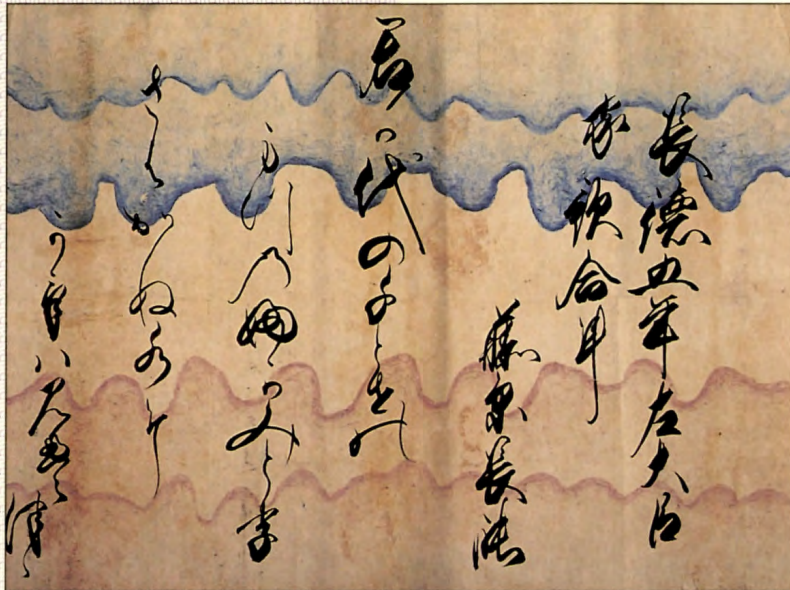 長徳五年左大臣
家歌合に
藤原長能
君か代の千とせの
まつ乃婦かみと李
さわかぬ水に
かけハ見えつゝ